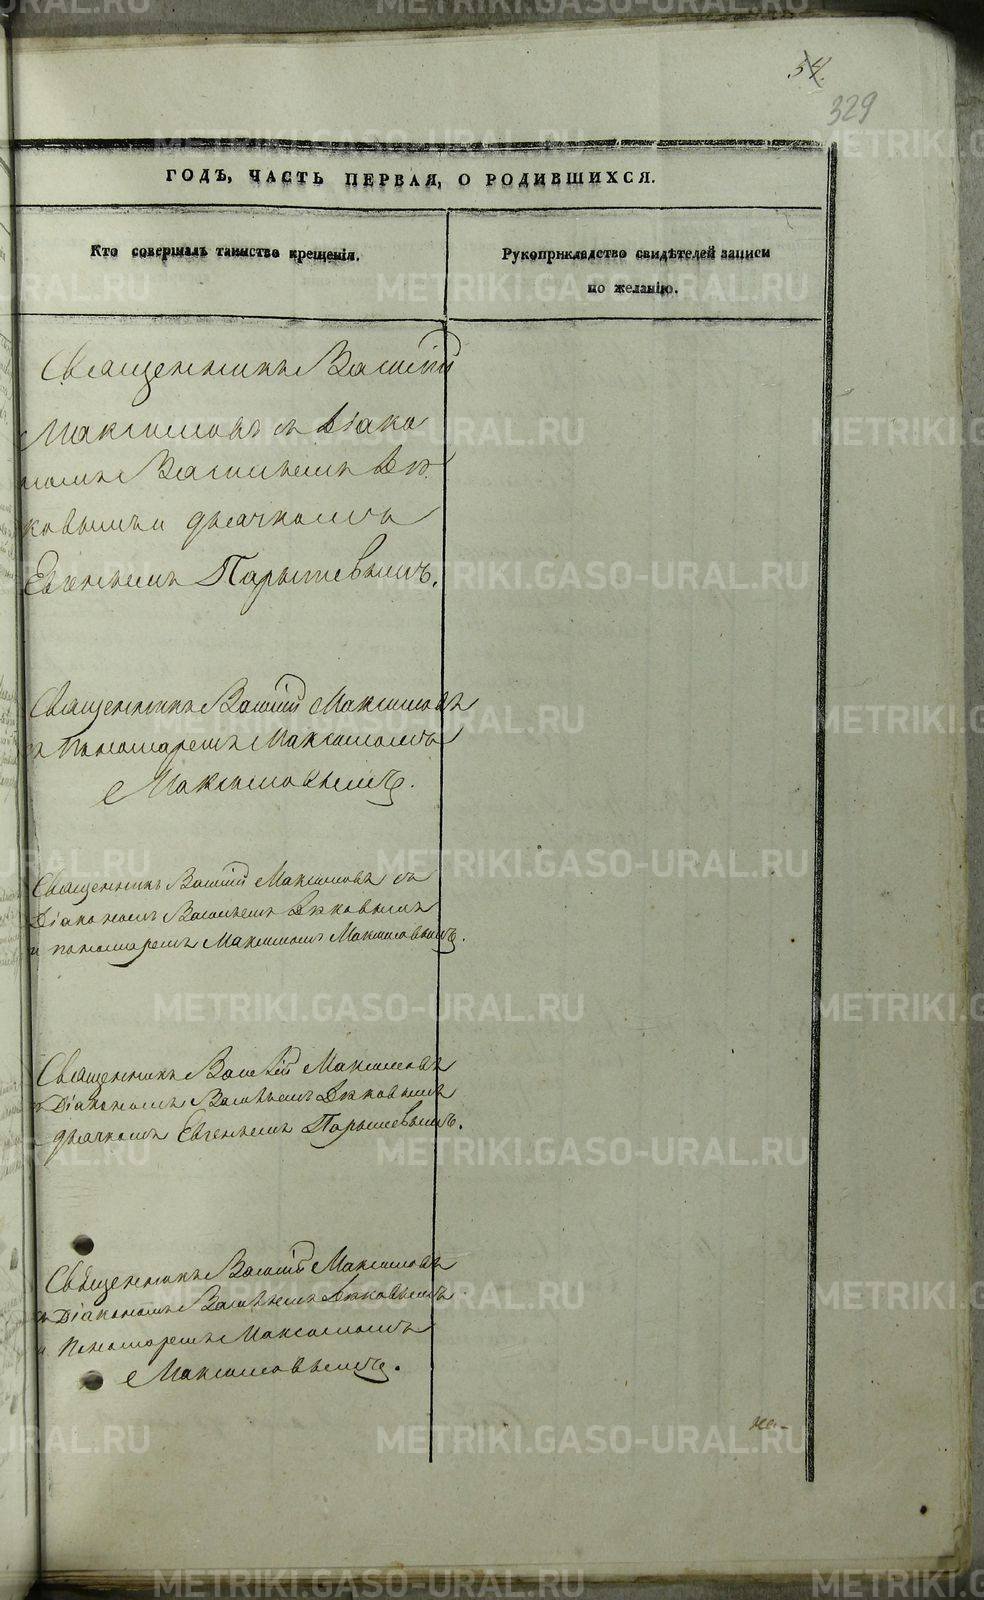 54.
329
ГОДЪ, ЧАСТЬ ПЕРВАЯ, О РОДИВШИХСЯ.
Кто совершалъ таинство крещенія.
Рукоприкладство свидѣтелей записи
по желанію.
Священникъ Василій
Максимовъ съ Діако
номъ Васильемъ Дѣ
ковымъ и дьячкомъ
Евгеньемъ Парышевымъ.
Священникъ Василій Максимовъ
съ Пономаремъ Максимомъ
Максимовымъ.
Священникъ Василій Максимовъ съ
Діакономъ Васильемъ Дѣковымъ
и пономаремъ Максимомъ Максимовымъ.
Священникъ Василій Максимовъ
съ Діакономъ Васильемъ Дѣковымъ
дьячкомъ Евгеньемъ Парышевымъ.
Священникъ Василій Максимовъ
съ Діакономъ Васильемъ Дѣковымъ
и Пономаремъ Максимомъ
Максимовымъ.
METRIKI.GASO-URAL.RU